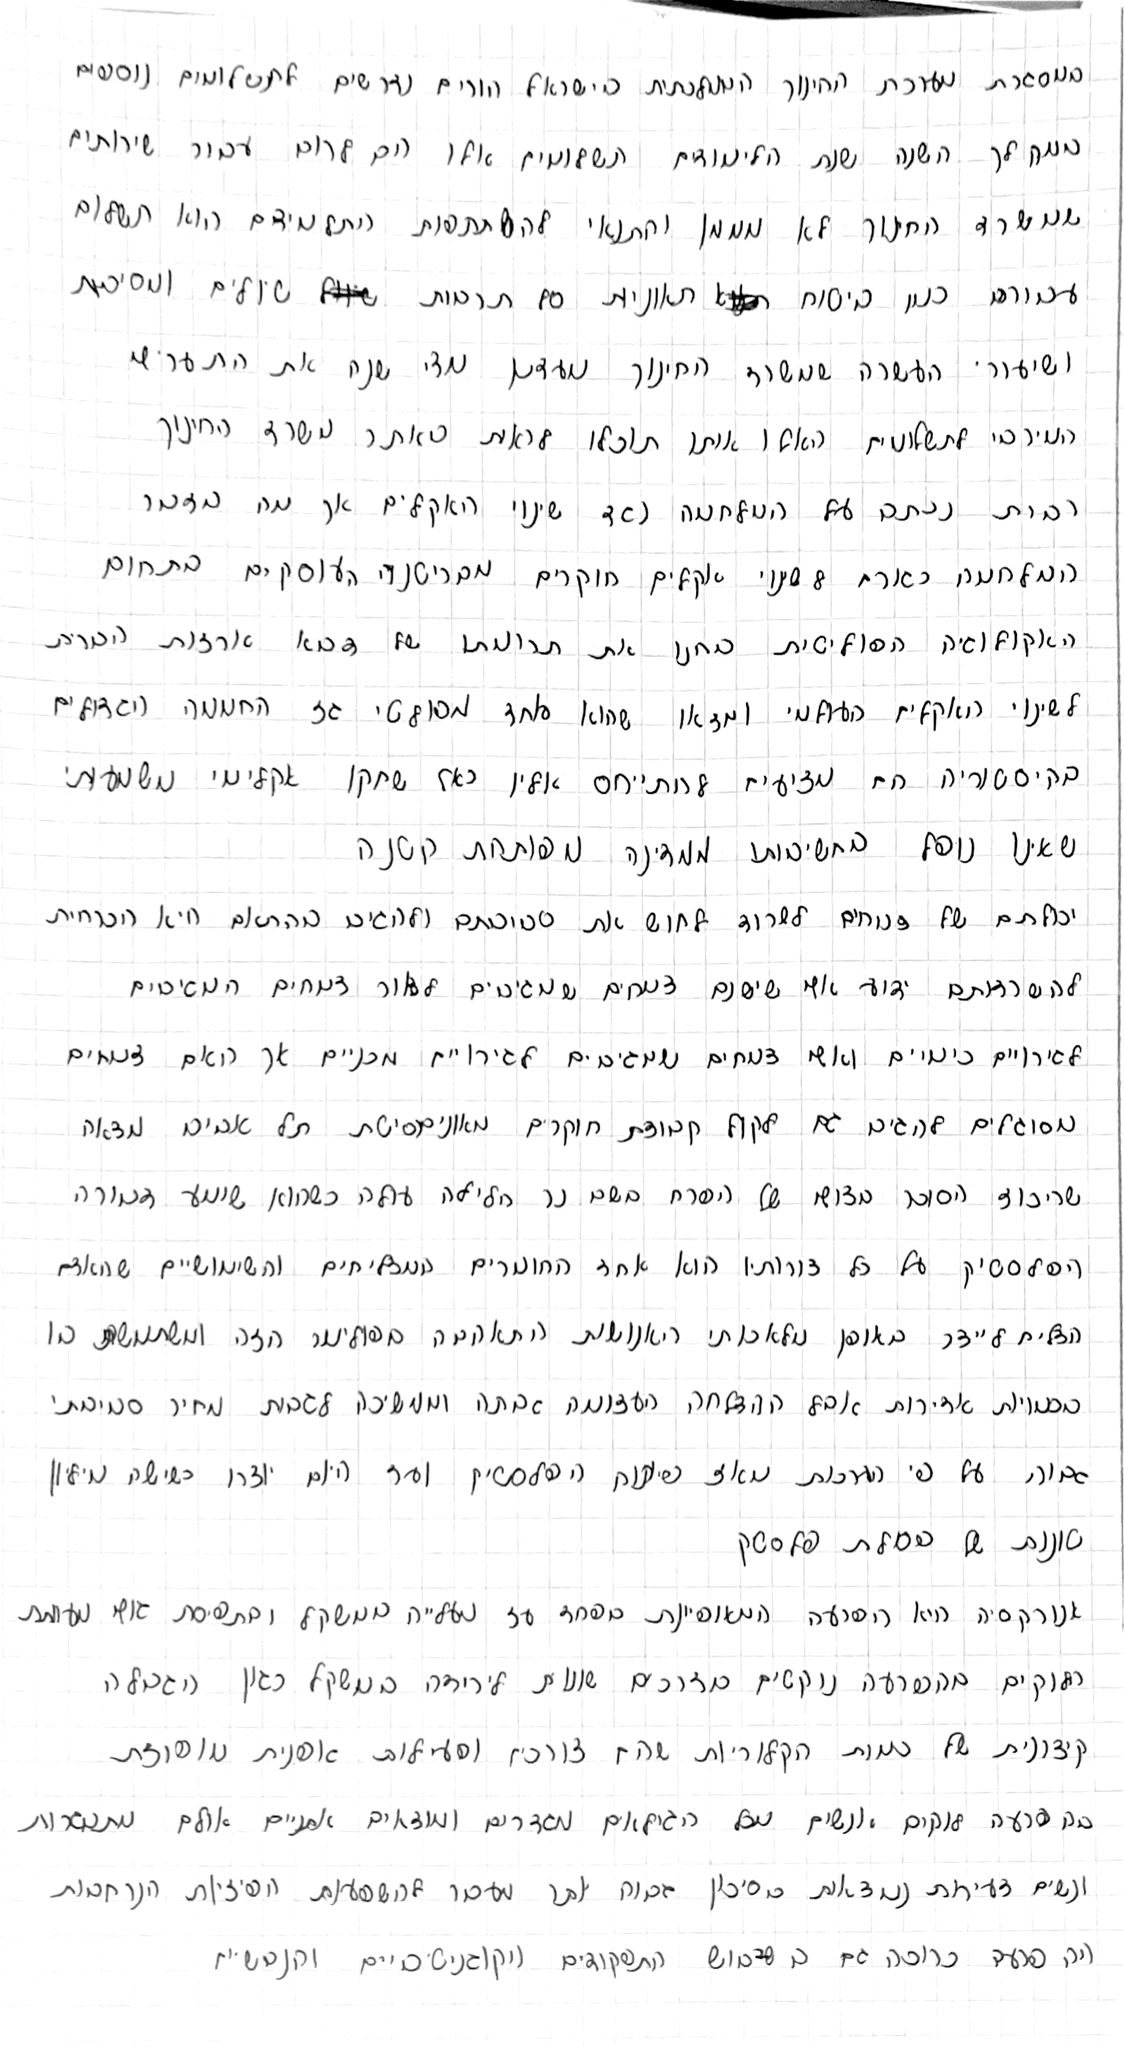 במסגרת מערכת החינוך הממלכתית בישראל הורים נדרשים לתשלומים נוספים
במהלך השנה שנת הלימודים תשלומים אלו הם לרוב עבור שירותים
שמשרד החינוך לא מממן והתנאי להשתתפות התלמידים הוא תשלום
עבורם כגון ביטוח תאונות סל תרבות טיולים ומסיבות
ושיעורי העשרה שמשרד החינוך מעדכן מדי שנה את התעריף
המירבי לתשלומים האלו אותו תוכלו לראות באתר משרד החינוך
רבות נכתב על המלחמה נגד שינוי האקלים אך מה בדבר
המלחמה כגורם לשינוי אקלים חוקרים מבריטניה העוסקים בתחום
האקולוגיה הפוליטית בחנו את תרומתו של צבא ארצות הברית
לשינוי האקלים העולמי ומצאו שהוא אחד מפולטי גז החממה הגדולים
בהיסטוריה הם מציעים להתייחס אליו כאל שחקן אקלימי משמעותי
שאינו נופל בחשיבותו ממדינה מפותחת קטנה
יכולתם של צמחים לשרוד לחוש את סביבתם ולהגיב בהתאם היא הכרחית
להשרדותם ידוע שישנם צמחים שמגיבים לאור צמחים המגיבים
לגירויים כימיים ואף צמחים שמגיבים לגירויים מכניים אך האם צמחים
מסוגלים להגיב גם לקול קבוצת חוקרים מאוניברסיטת תל אביב מצאה
שריכוז הסוכר בצוף של הפרח בשם נר הלילה עולה כשהוא שומע דבורה
הפלסטיק על כל צורותיו הוא אחד החומרים המצליחים והשימושיים שהאדם
הצליח לייצר באופן מלאכותי האנושות התאהבה בפולימר הזה ומשתמשת בו
בכמויות אדירות אבל ההצלחה העצומה גבתה וממשיכה לגבות מחיר סביבתי
גבוה על פי הערכות מאז פיתוח הפלסטיק ועד היום יוצרו כשישה מיליון
טונות של פסולת פלסטק
אנורקסיה היא הפרעה המאופיינת בפחד עז מעלייה במשקל ובתפיסת גוף מעוותת
הלוקים בהפרעה נוקטים בדרכים שונות לירידה במשקל כגון הגבלה
קיצונית של כמות הקלוריות שהם צורכים ופעילות גופנית מופרזת
בהפרעה לוקים אנשים מכל הגילאים מגדרים ומוצאים אתניים אולם מתבגרות
ונשים צעירות נמצאות בסיכון גבוה יותר מעבר להשפעות הפיזיות הנרחבות
ההפרעה כרוכה גם בשיבוש התפקודים הקוגניטיביים והנפשיים